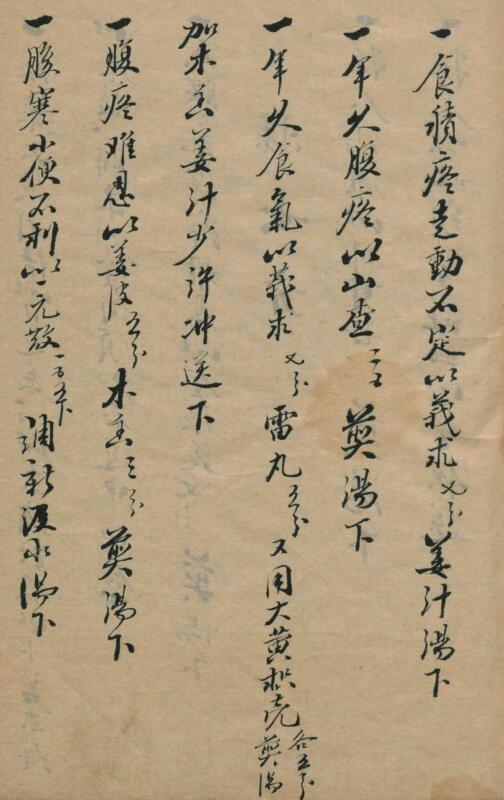 一食積疼走動不定以莪朮七分姜汁湯下
一年久腹疼以山查二錢煎湯下
一年久食氣以莪朮七分雷丸五分又用大黃枳壳各五分煎湯
加木香姜汁少許沖送下
一腹疼难忍以姜皮五分木香三分煎湯下
一腹寒小便不利以一元散調新汲水湯下